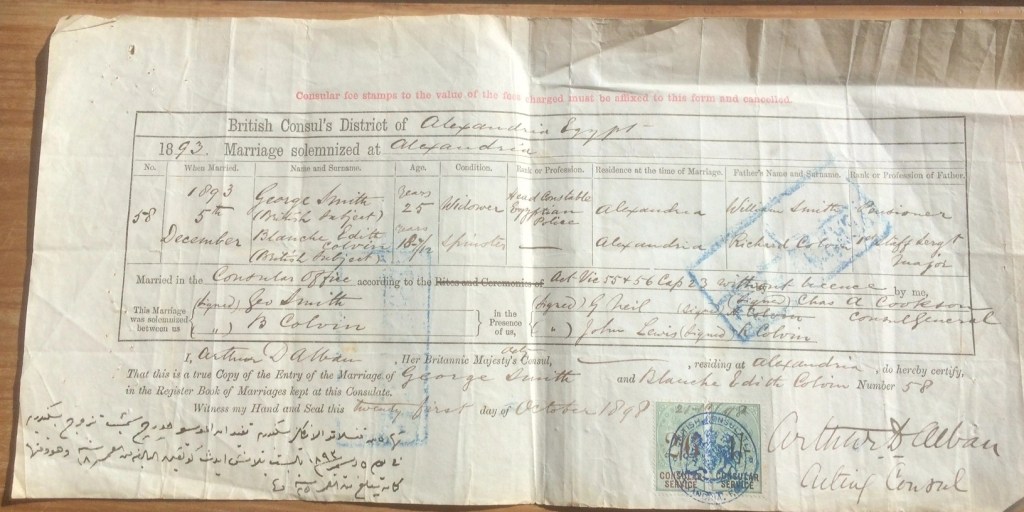 Consular fee stamps to the value of the fees charged must be affixed to this form and cancelled.
British Consul's District of Alexandria Egypt
1893. Marriage solemnized at Alexandria
No. When Married. Name and Surname. Age. Condition. Rank or Profession. Residence at the time of Marriage. Father's Name and Surname. Rank or Profession of Father.
58 1893 5th December
George Smith (British Subject) years 25 Widower Head Constable Egyptian Police Alexandria William Smith Pensioner
Blanche Edith Colvin (British Subject) years 18 7/12 Spinster — Alexandria Richard Colvin Staff Sergt Major
Married in the Consular Office according to the Rites and Ceremonies of Act Vic 55 & 56 Cap 23 without licence by me,
This Marriage was solemnized between us (signed) Geo Smith
( „ ) B Colvin
In the Presence of us, (signed) G Neil (signed) Colvin
( „ ) John Lewis (signed) R Colvin
(signed) Chas A Cookson
Consul General
I, Arthur D Alban, Her Britannic Majesty's Actg Consul, — , residing at Alexandria, do hereby certify,
That this is a true Copy of the Entry of the Marriage of George Smith and Blanche Edith Colvin Number 58
in the Register Book of Marriages kept at this Consulate.
Witness my Hand and Seal this twenty first day of October 1898
CONSULAR SERVICE CONSULAR SERVICE
Arthur D Alban
Acting Consul